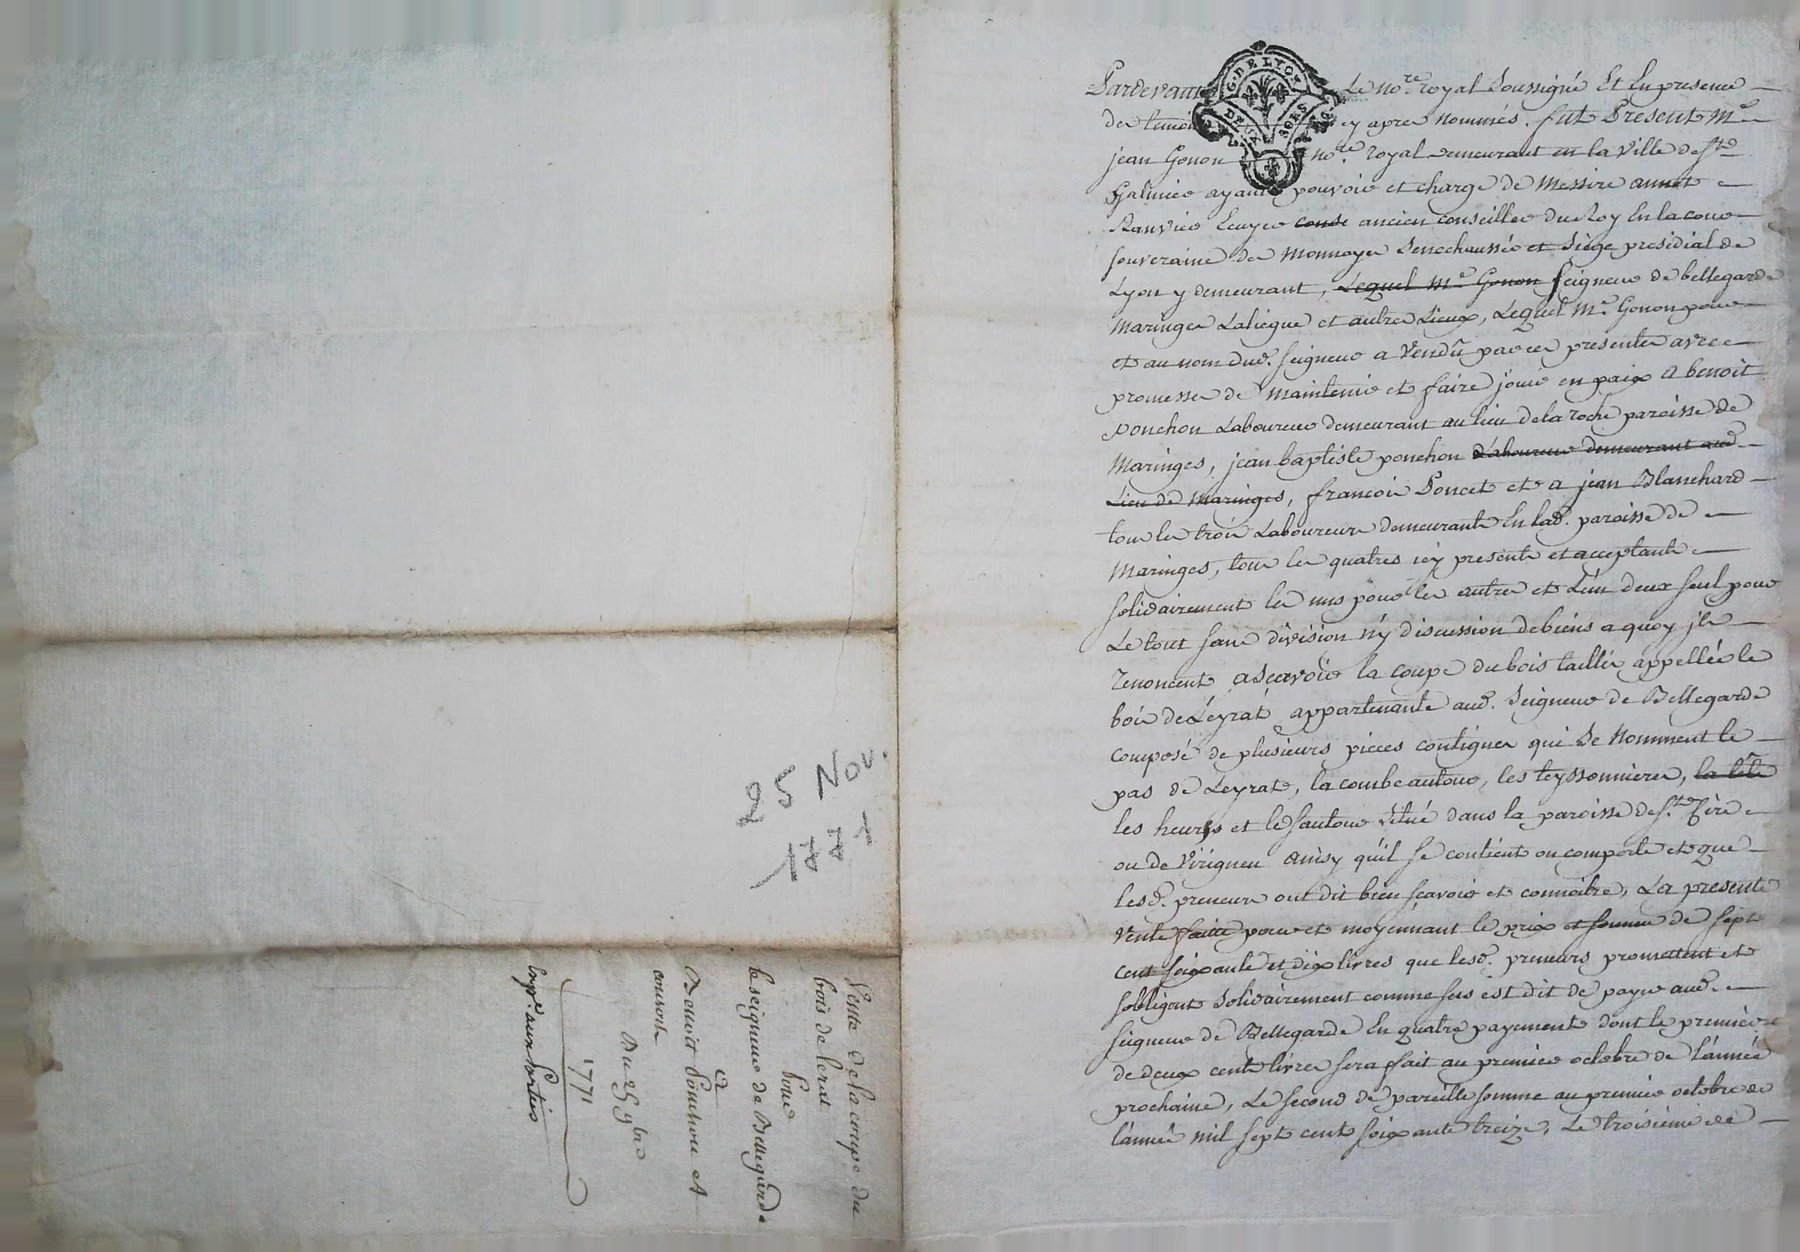 Pardevant Le no.re royal Soussigné Et En presence
des temoins cy apres nommés. fut Present M.e
jean Gonon no.re royal demeurant en la ville de St
Galmier ayant pouvoir et charge de Messire annet
Ranvier Ecuyer conse ancien conseiller du Roy En la cour
souveraine des monnoyes Senechaussée et Siège presidial de
Lyon y demeurant, Lequel M.e Gonon seigneur de bellegarde
maringes Laliegue et autres Lieux, Lequel M.e Gonon pour
et au nom dud. seigneur a Vendû par ces presentes avec
promesse de maintenir et faire jouir en paix a benoit
ponchon Laboureur demeurant au lieu de la roche paroisse de
Maringes, jean baptiste ponchon Laboureur demeurant aud.
Lieu de Maringes, francois Poncet et a jean Blanchard
tous les trois Laboureurs demeurants En lad. paroisse de
Maringes, tous les quatres icy presents et acceptants
solidairement les uns pour les autres et L'un deux seul pour
Le tout sans division ny discussion de biens a quoy ils
renoncent, a Scavoir la coupe du bois taillis appellée le
bois de Leyrat appartenante aud. Seigneur de Bellegarde
composé de plusieurs pieces contigues qui Se Nomment le
pas de Leyrat, la combe autour, les teyssonnieres, la tete
les heures et le sautour situé dans la paroisse de St. Cire
ou de Virigneu ainsy qu'il se contient ou comporte et que
lesd. preneurs ont dit bien scavoir et connoitre, La presente
Vente faitte pour et moyennant le prix et somme de sept
cent soixante et dix livres que lesd. preneurs promettent et
sobligent Solidairement comme sus est dit de payer aud.
seigneur de Bellegarde En quatre payements dont le premier
de deux cents livres sera fait au premier octobre de L'année
prochaine, Le second de pareille somme au premier octobre de
l'année mil sept cent soixante treize, Le troisieme de
25 Nov.
1771
Vente de la coupe du
bois de lerat
Pour
la seigneur de Bellegarde
a
Benoist Ponchon et
consorts
Du 25 9bre
1771